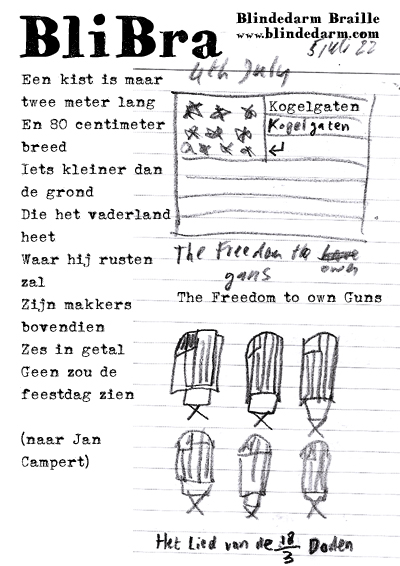 BliBra
Blindedarm Braille
www.blindedarm.com
5 juli 22
4th July
Een kist is maar
twee meter lang
En 80 centimeter
breed
Iets kleiner dan
de grond
Die het vaderland
heet
Waar hij rusten
zal
Zijn makkers
bovendien
Zes in getal
Geen zou de
feestdag zien
(naar Jan
Campert)
Kogelgaten
Kogelgaten
The Freedom to
own
guns
The Freedom to own Guns
Het Lied van de 18/3 Doden